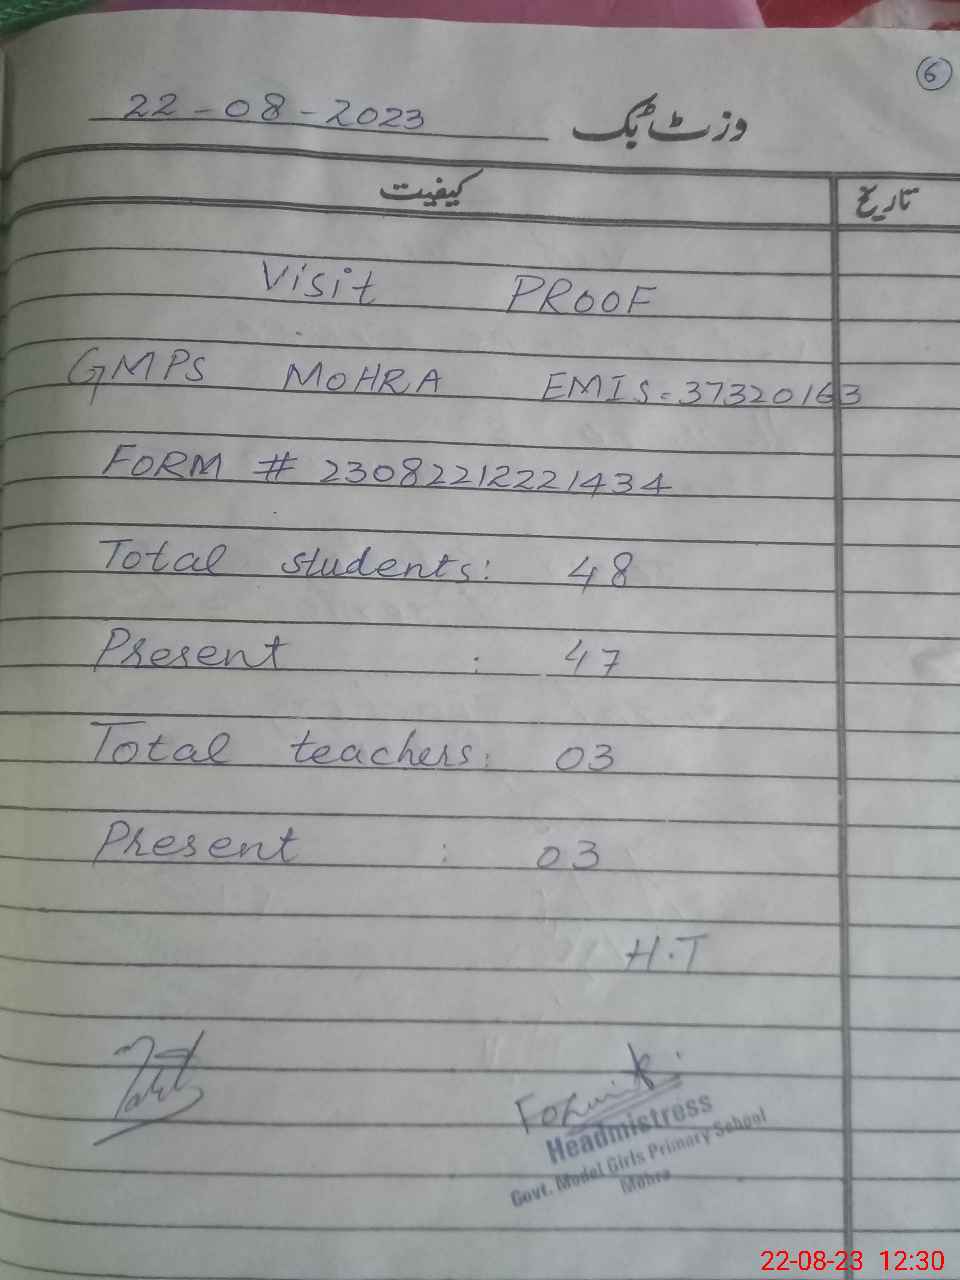 6
22-08-2023 وزٹ بک
کیفیت تاریخ
Visit PROOF
GMPS MOHRA EMIS=37320163
FORM # 23082212221434
Total students: 48
Present : 47
Total teachers: 03
Present : 03
H.T
Headmistress
Govt. Model Girls Primary School
Mohra
22-08-23 12:30